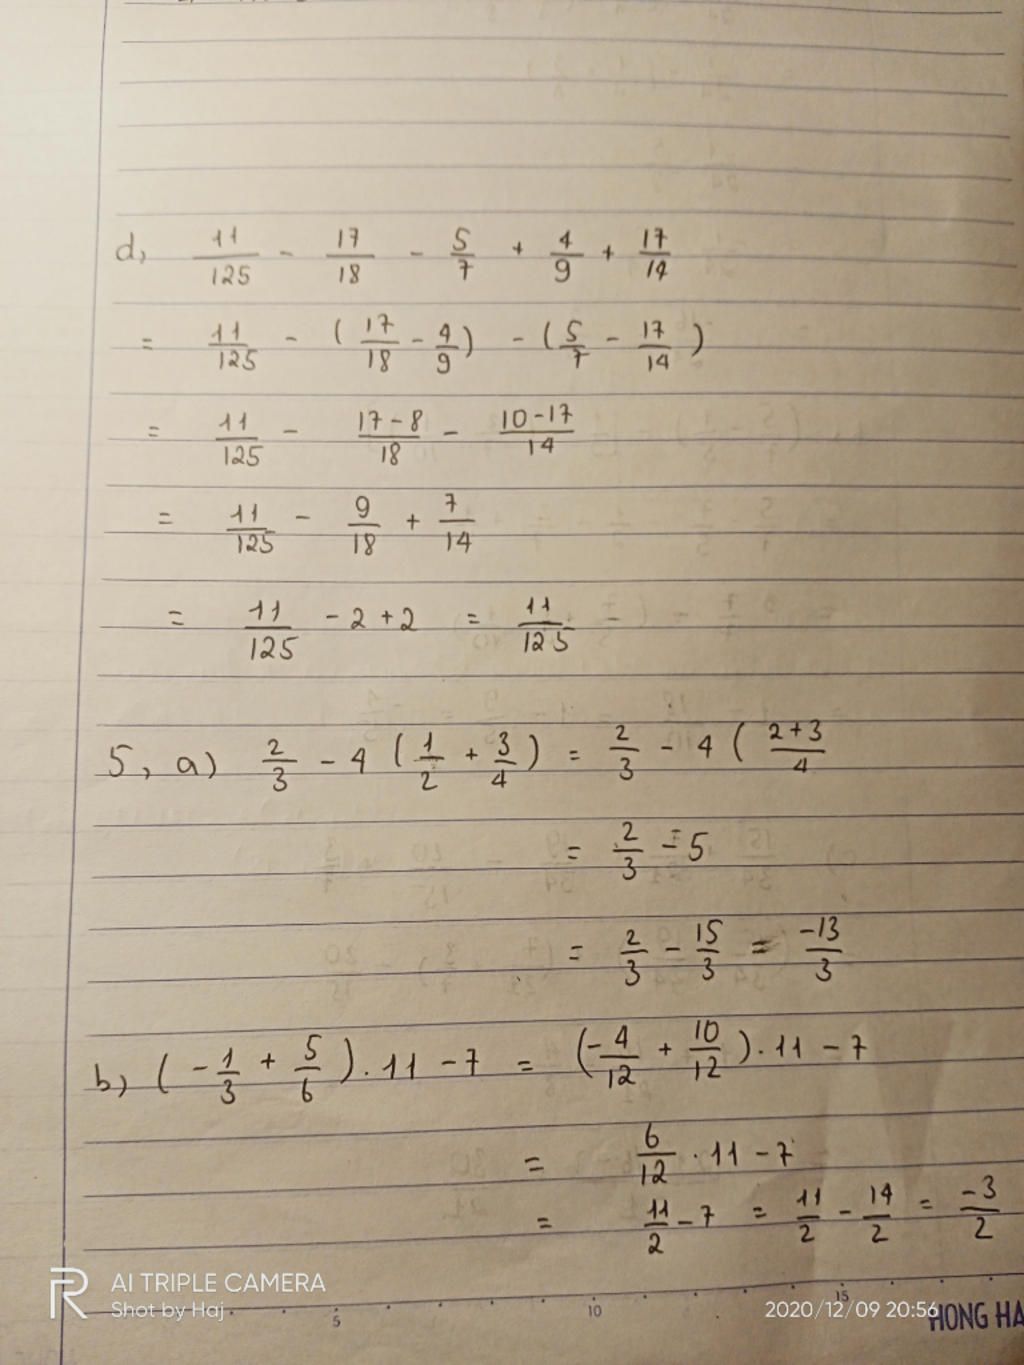 d, 11/125 - 17/18 - 5/7 + 4/9 + 17/14
= 11/125 - (17/18 - 4/9) - (5/7 - 17/14)
= 11/125 - 17-8/18 - 10-17/14
= 11/125 - 9/18 + 7/14
= 11/125 - 2 + 2 = 11/125
5, a) 2/3 - 4 (1/2 + 3/4) = 2/3 - 4 (2+3/4
= 2/3 - 5
= 2/3 - 15/3 = -13/3
b) (-1/3 + 5/6) . 11 - 7 = (-4/12 + 10/12) . 11 - 7
= 6/12 . 11 - 7
= 11/2 - 7 = 11/2 - 14/2 = -3/2
AI TRIPLE CAMERA
Shot by Haj
2020/12/09 20:56
5 10 15
HONG HA